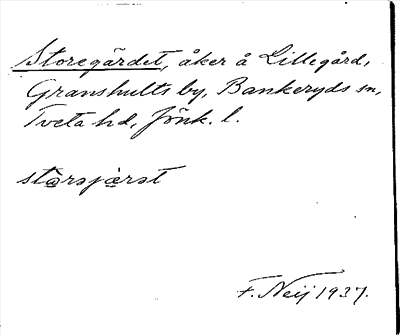 Storegärdet, åker å Lillegård,
Granshults by, Bankeryds sn,
Tveta hd, Jönk. l.
stɷrəjærət
F. Neij 1937.